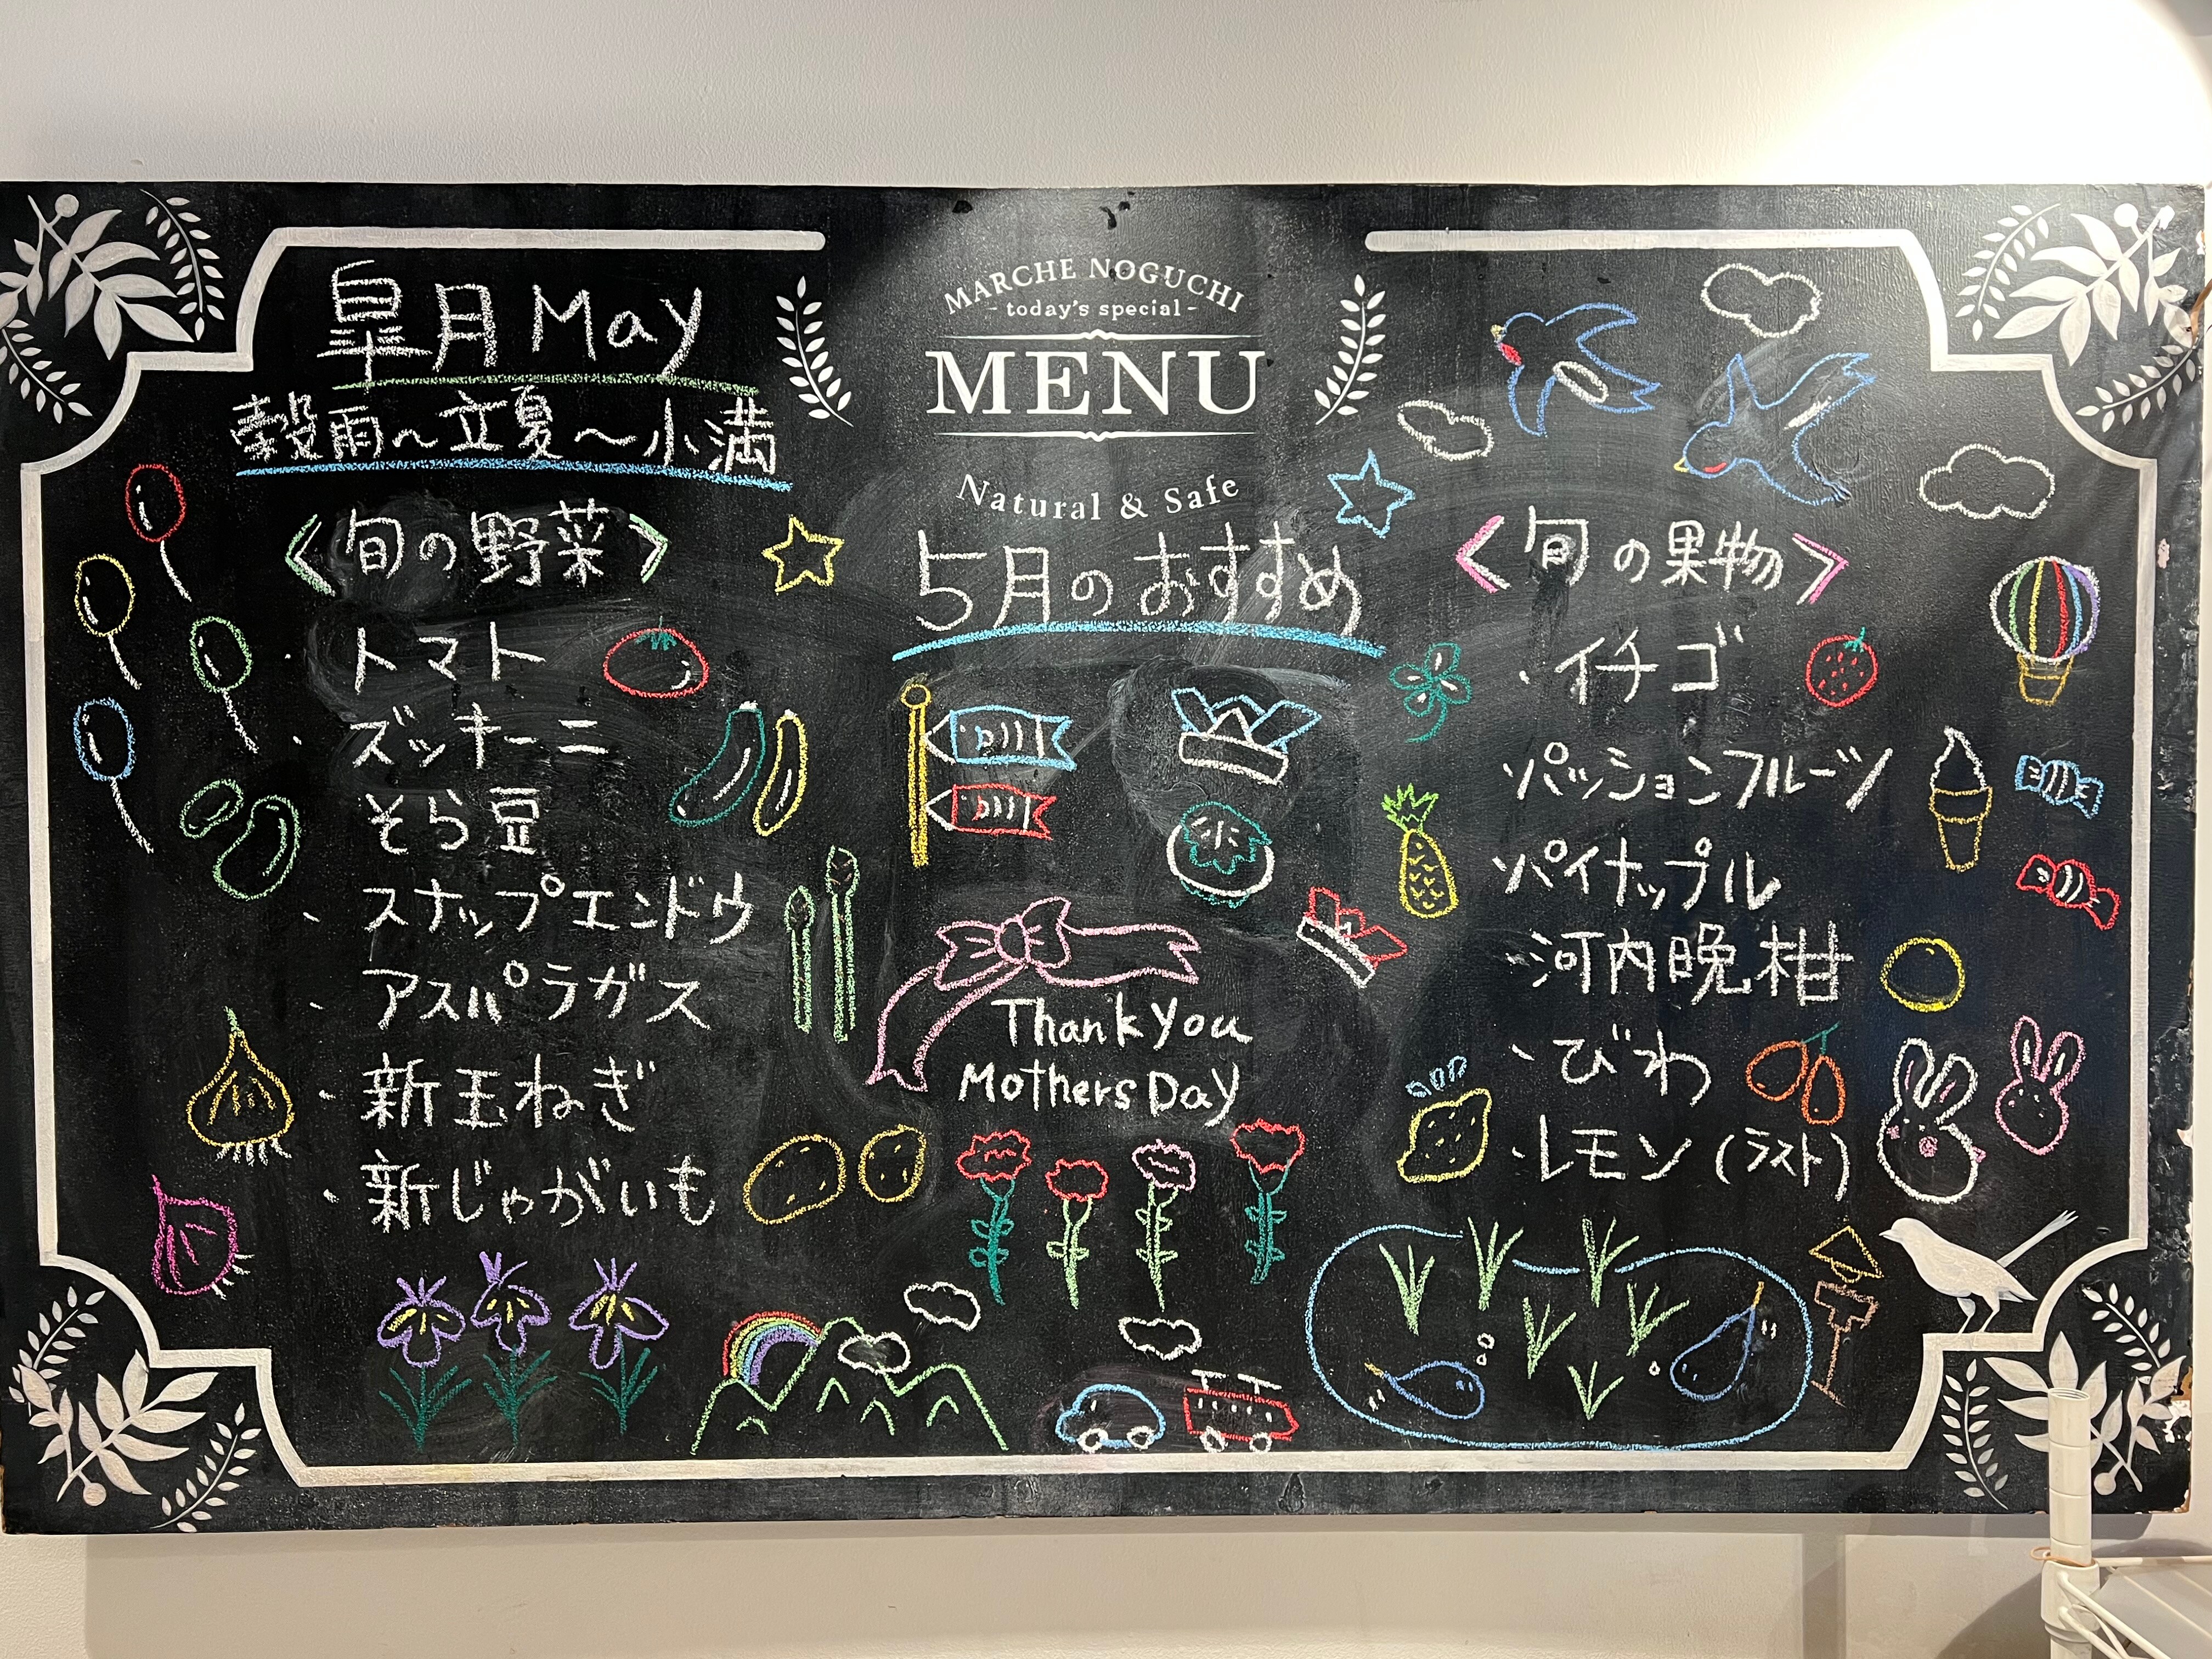 皐月 May
穀雨～立夏～小満
〈旬の野菜〉
・トマト
・ズッキーニ
そら豆
・スナップエンドウ
・アスパラガス
・新玉ねぎ
・新じゃがいも
MARCHE NOGUCHI
- today's special -
MENU
Natural & Safe
5月のおすすめ
Thank You
Mothers Day
〈旬の果物〉
・イチゴ
パッションフルーツ
パイナップル
・河内晩柑
・びわ
・レモン (ラスト)